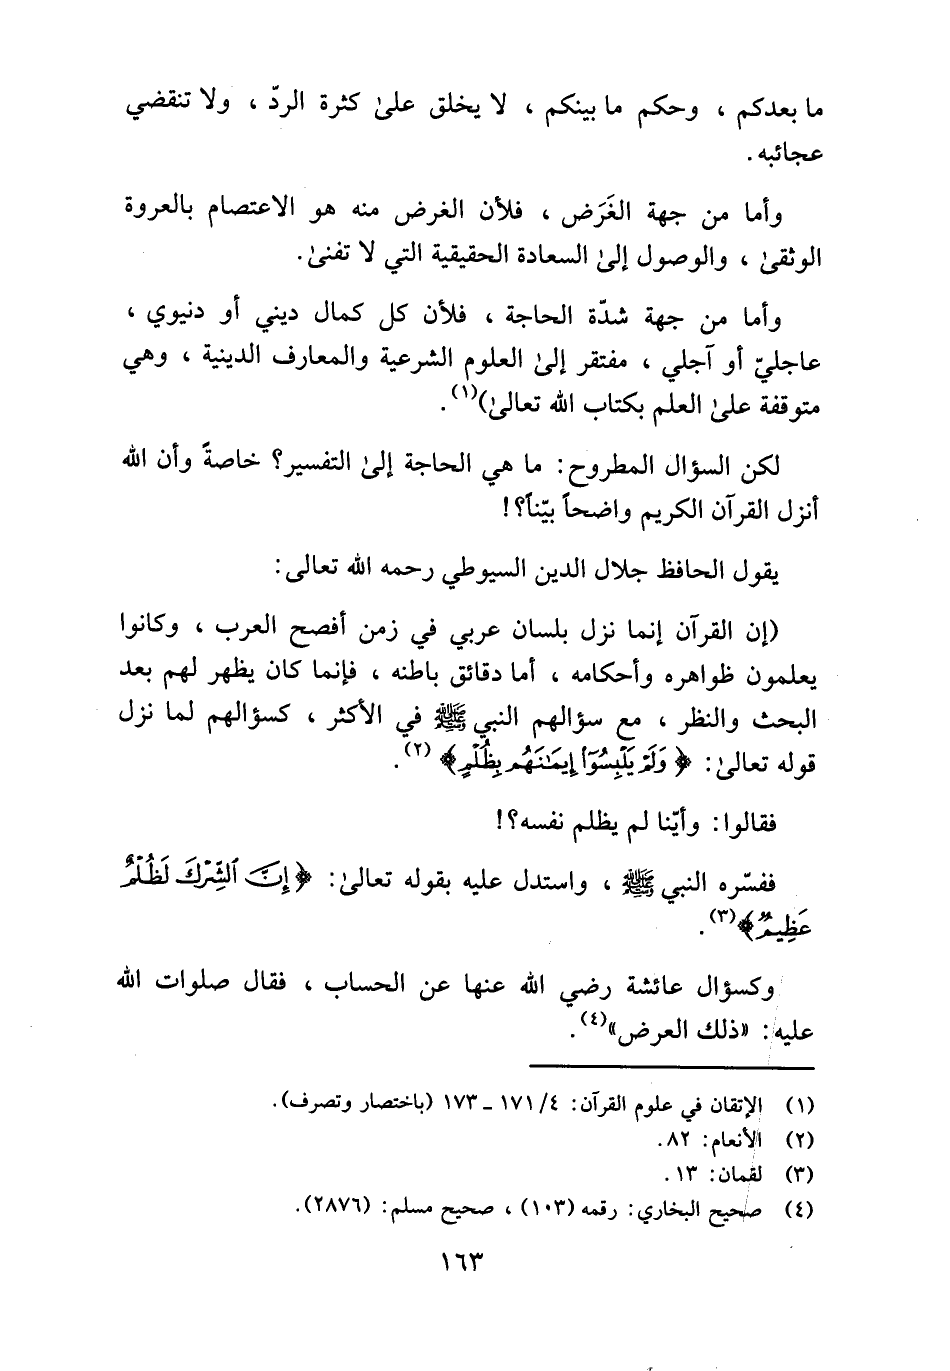 ما بعدكم ، وحكم ما بينكم ، لا يخلق علىٰ كثرة الردّ ، ولا تنقضي
عجائبه .
وأما من جهة الغَرَض ، فلأن الغرض منه هو الاعتصام بالعروة
الوثقىٰ ، والوصول إلىٰ السعادة الحقيقية التي لا تفنىٰ .
وأما من جهة شدّة الحاجة ، فلأن كل كمال ديني أو دنيوي ،
عاجليّ أو آجلي ، مفتقر إلىٰ العلوم الشرعية والمعارف الدينية ، وهي
متوقفة علىٰ العلم بكتاب الله تعالىٰ)(١) .
لكن السؤال المطروح : ما هي الحاجة إلىٰ التفسير؟ خاصةً وأن الله
أنزل القرآن الكريم واضحاً بيّناً؟!
يقول الحافظ جلال الدين السيوطي رحمه الله تعالى :
(إن القرآن إنما نزل بلسان عربي في زمن أفصح العرب ، وكانوا
يعلمون ظواهره وأحكامه ، أما دقائق باطنه ، فإنما كان يظهر لهم بعد
البحث والنظر ، مع سؤالهم النبي ﷺ في الأكثر ، كسؤالهم لما نزل
قوله تعالىٰ : ﴿ وَلَمْ يَلْبِسُوٓا۟ إِيمَـٰنَهُم بِظُلْمٍ﴾ (٢) .
فقالوا : وأيّنا لم يظلم نفسه؟!
ففسّره النبي ﷺ ، واستدل عليه بقوله تعالىٰ : ﴿ إِنَّ ٱلشِّرْكَ لَظُلْمٌ
عَظِيمٌ﴾(٣) .
وكسؤال عائشة رضي الله عنها عن الحساب ، فقال صلوات الله
عليه : «ذلك العرض»(٤) .
(١) الإتقان في علوم القرآن : ٤/ ١٧١ ـ ١٧٣ (باختصار وتصرف) .
(٢) الأنعام : ٨٢ .
(٣) لقمان : ١٣ .
(٤) صحيح البخاري : رقمه (١٠٣) ، صحيح مسلم : (٢٨٧٦) .
١٦٣